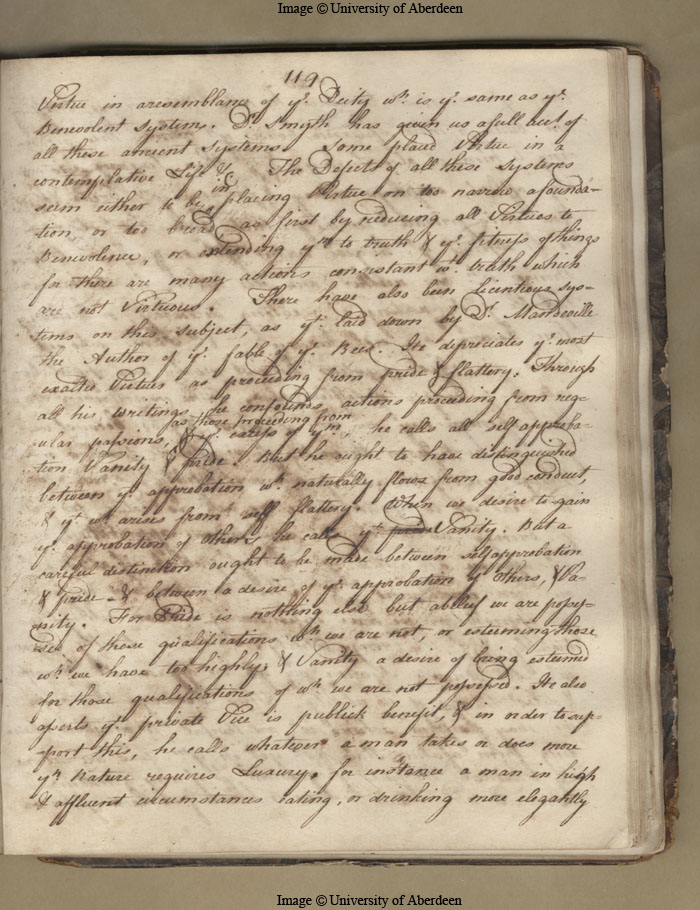 Image © University of Aberdeen
119
Virtue in a resemblance of yͤ. Deity wͨ. is yͤ. same as yͤ.
Benevolent System. Dʳ. Smyth has given us a full accᵗ. of
all these ancient Systems. Some placed Virtue in a
contemplative Life &c. The Defects of all these Systems
seem either to be in placing Virtue on too narrow a founda-
tion or too broad, as first by reducing all Virtues to
Benevolence, or extending yᵐ to truth & yͤ. fitness of things
for there are many actions consistant wᵗ. truth which
are not Virtuous. There have also been licentious sys-
tems on this subject, as yᵗ. laid down by Dʳ. Mandeville
the Author of yͤ. fable of yͤ. Bees. He depreciates yͤ. most
exalted Virtues as proceeding from pride & flattery. Through
all his writings he confounds actions proceeding from reg-
ular passions, as those proceeding from yͤ. excess of yᵐ, he calls all self approba-
tion Vanity & pride. But he ought to have distinguished
between yͤ. approbation wͨ. naturally flows from good conduct,
& yᵗ. wͨ. arises from self flattery. When we desire to gain
yͤ. approbation of others, he calls yᵗ. pride Vanity. But a
careful distinction ought to be made between self approbation
& pride - & between a desire of yͤ. approbation of others, & Va-
nity. For Pride is nothing else but a belief we are posses-
sed of those qualifications wͨ. we are not, or esteeming those
wͨ. we have too highly; & Vanity a desire of being esteemed
for those qualifications of wͨ. we are not possessed. He also
aserts yᵗ. private Vice is publick benefit, & in order to sup-
port this, he calls whatever a man takes or does more
yⁿ Nature requires Luxury. for instance a man in high
& affluent circumstances eating, or drinking more elegantly
Image © University of Aberdeen